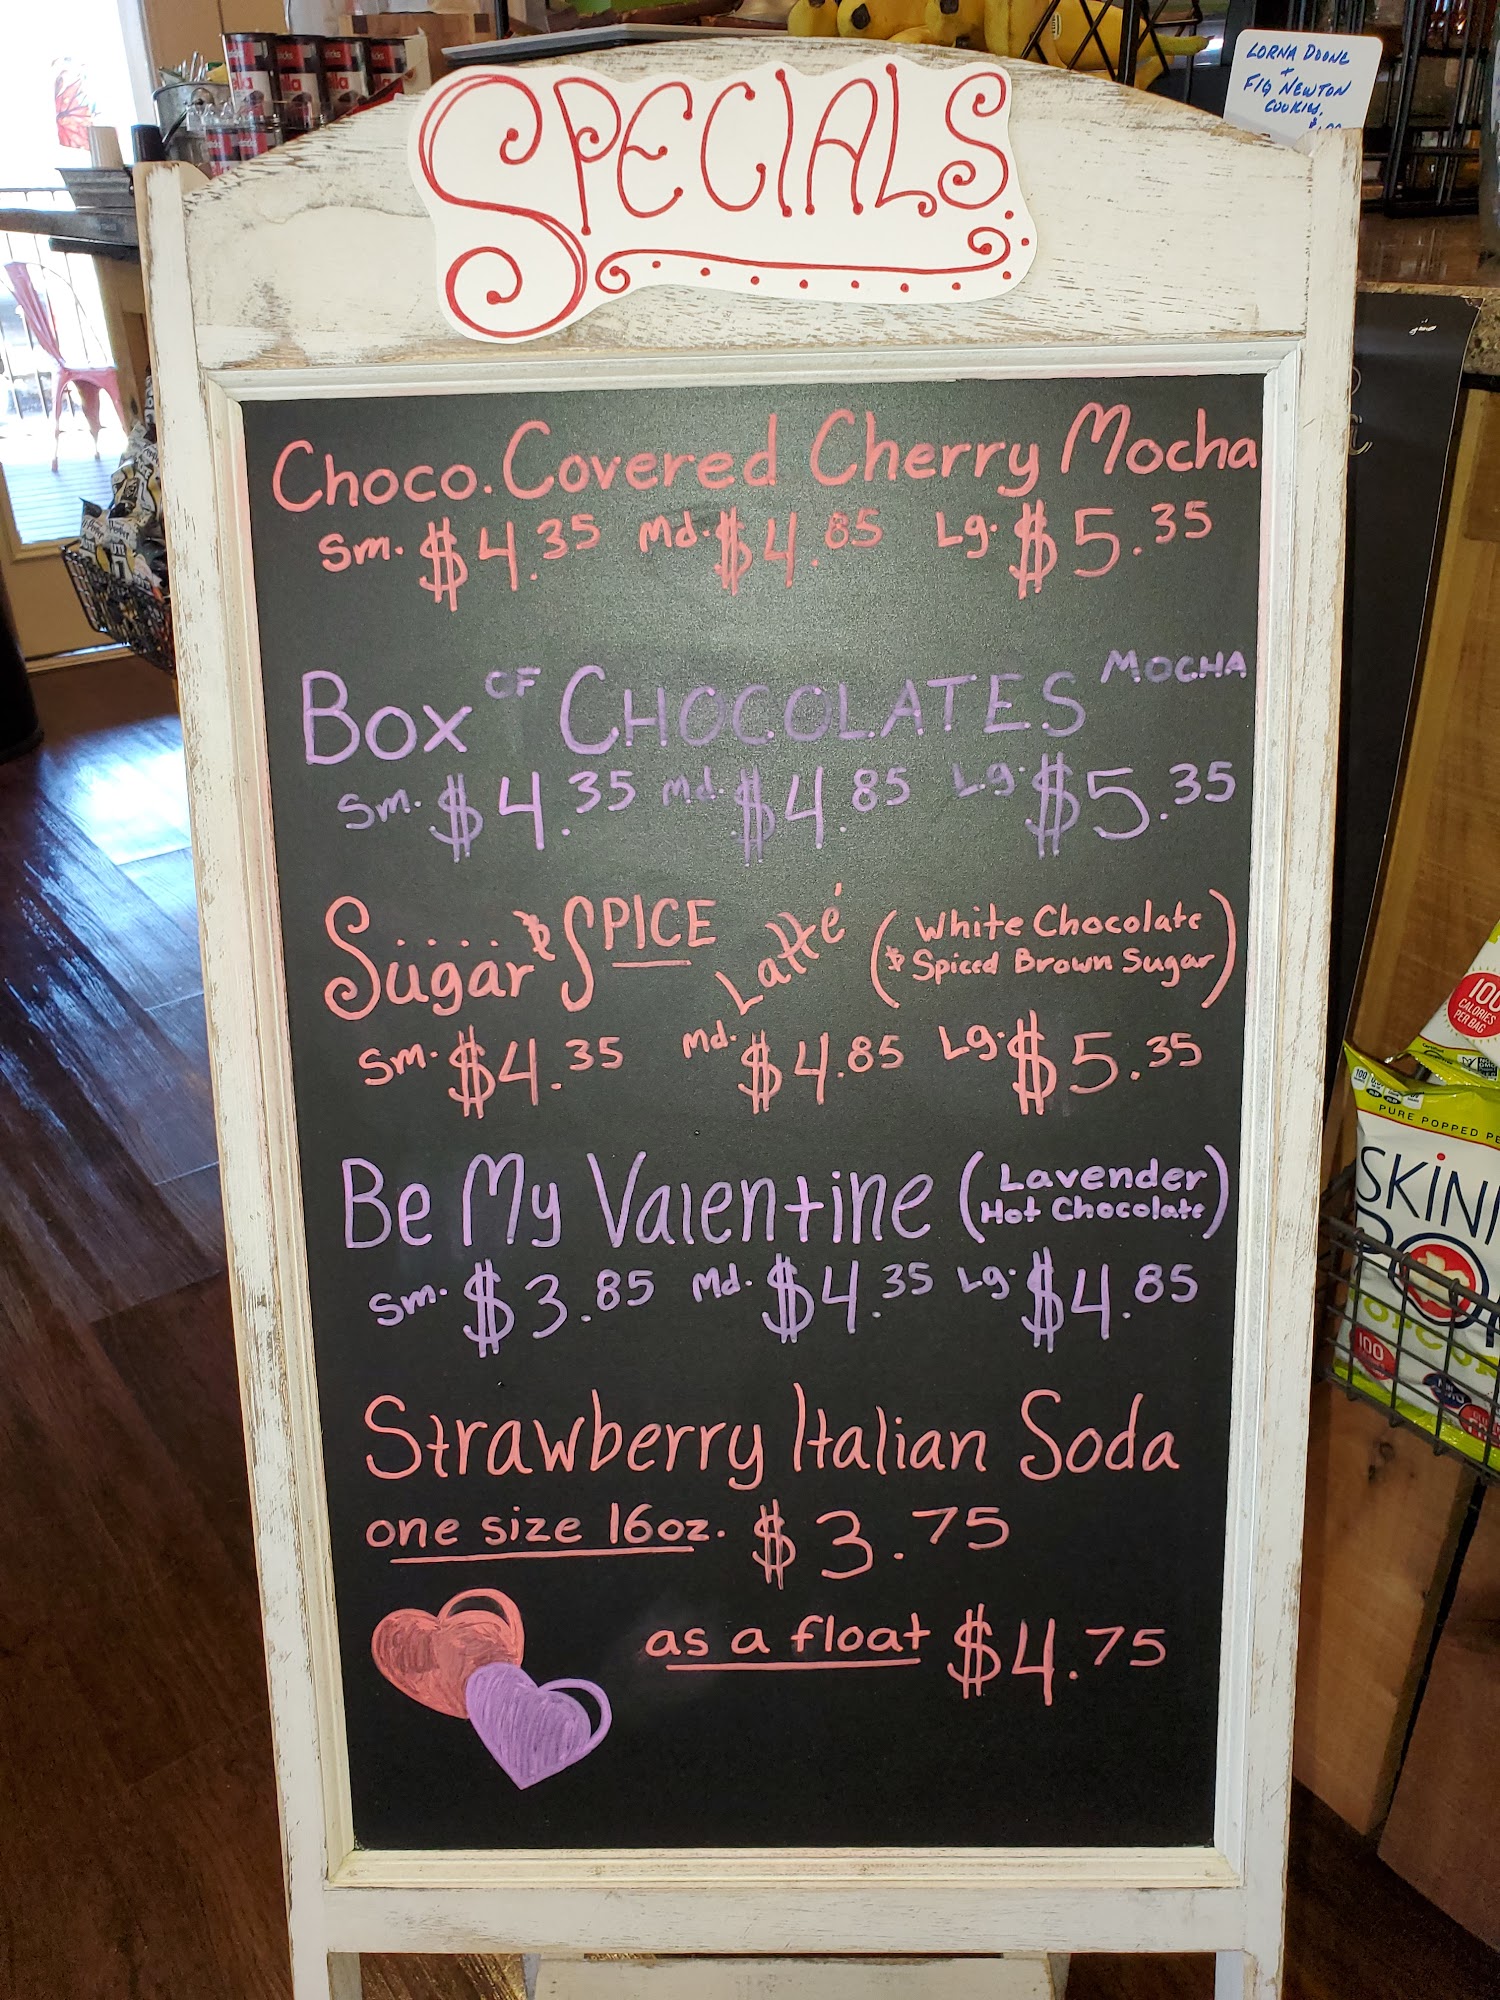 SPECIALS
Choco. Covered Cherry Mocha
Sm. $4.35 Md. $4.85 Lg. $5.35
Box OF CHOCOLATES MOCHA
Sm. $4.35 Md. $4.85 Lg. $5.35
Sugar & SPICE Latté (White Chocolate
& Spiced Brown Sugar)
Sm. $4.35 Md. $4.85 Lg. $5.35
Be My Valentine (Lavender
Hot Chocolate)
Sm. $3.85 Md. $4.35 Lg. $4.85
Strawberry Italian Soda
one size 16oz. $3.75
as a float $4.75
LORNA DOONE
+
FIG NEWTON
COOKIES.
100
CALORIES
PER BAG
PURE POPPED
SKINNY
100